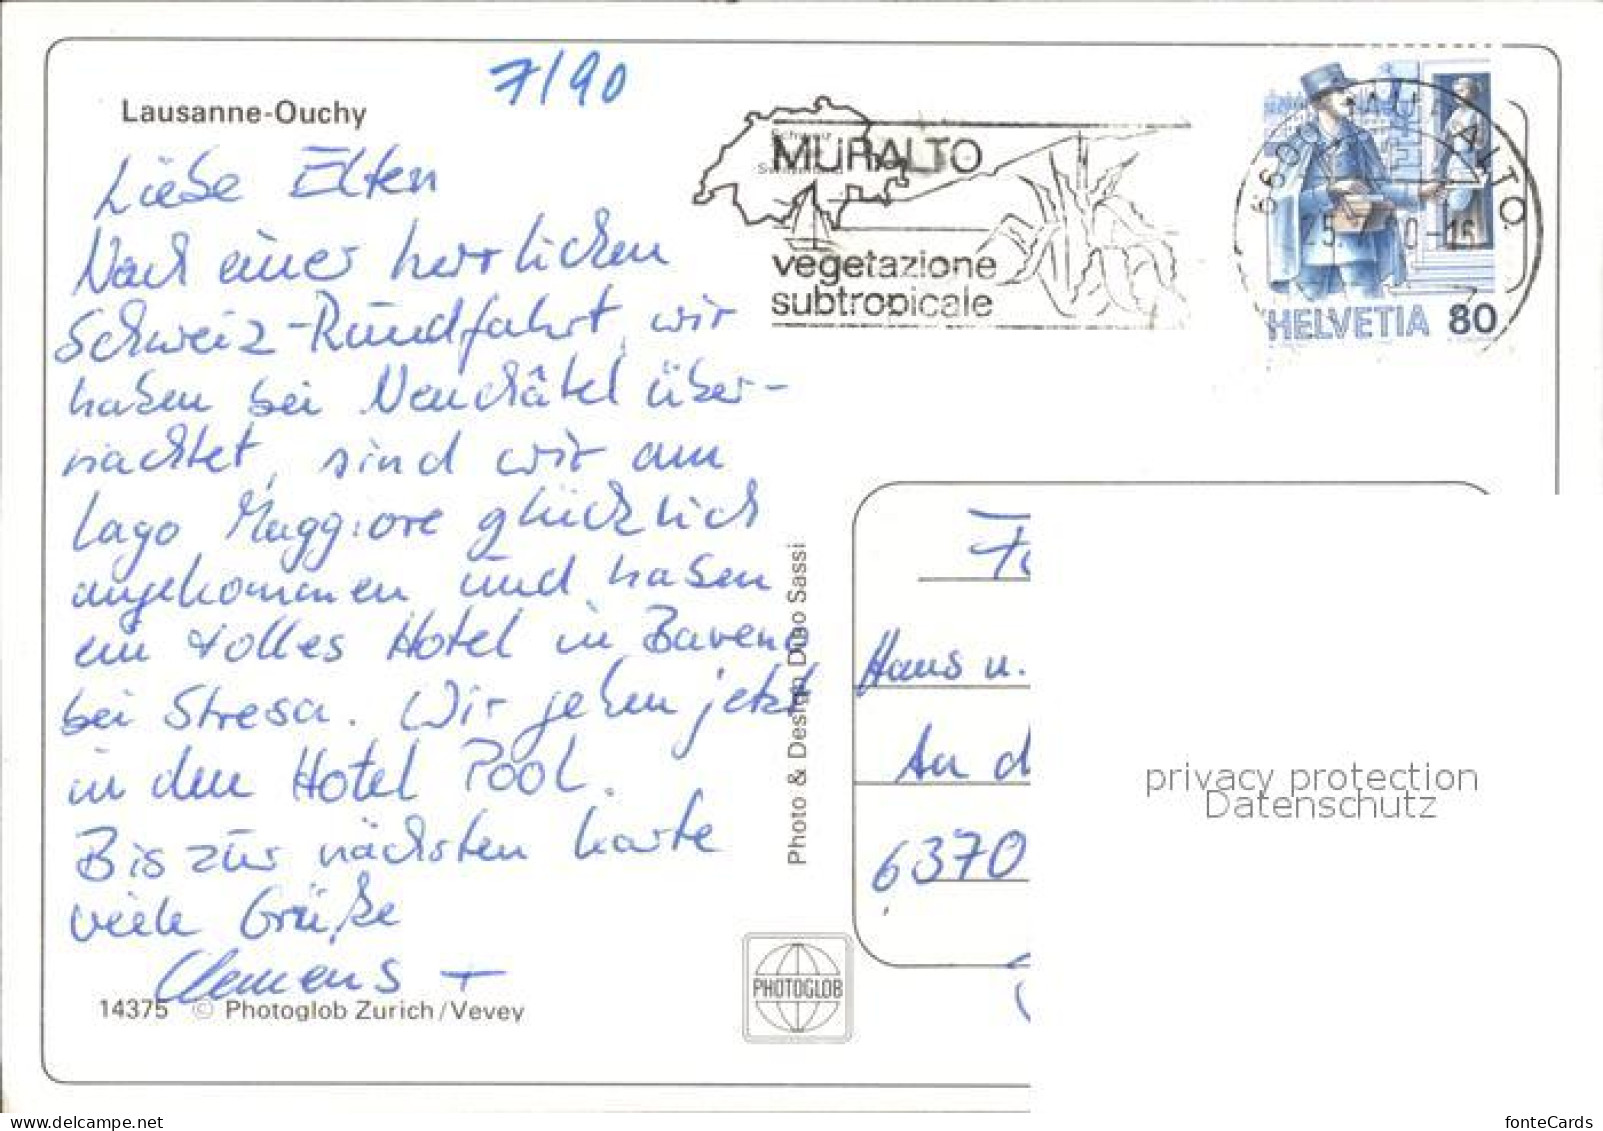 7/90
Lausanne-Ouchy
Liebe Eltern
Nach einer herrlichen
Schweiz-Rundfahrt, wir
haben bei Neuchâtel über-
nachtet, sind wir am
Lago Maggiore glücklich
angekommen und haben
ein tolles Hotel in Baveno
bei Stresa. Wir gehen jetzt
in den Hotel Pool.
Bis zur nächsten Karte
viele Grüße
Clemens +
14375 © Photoglob Zurich/Vevey
Photo & Design Duao Sassi
PHOTOGLOB
MURALTO
vegetazione
subtropicale
6600 MURALTO
25. 7. 90-16
HELVETIA 80
Hans u.
An d
6370
privacy protection
Datenschutz
your own online store
fonteCards